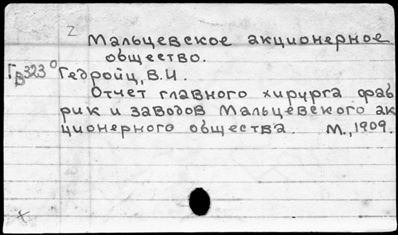 2
Мальцевское акционерное
общество.
Гв323⁰ Гедройц, В.И.
Отчет главного хирурга фаб
рик и заводов Мальцевского ак
ционерного общества. М., 1909.